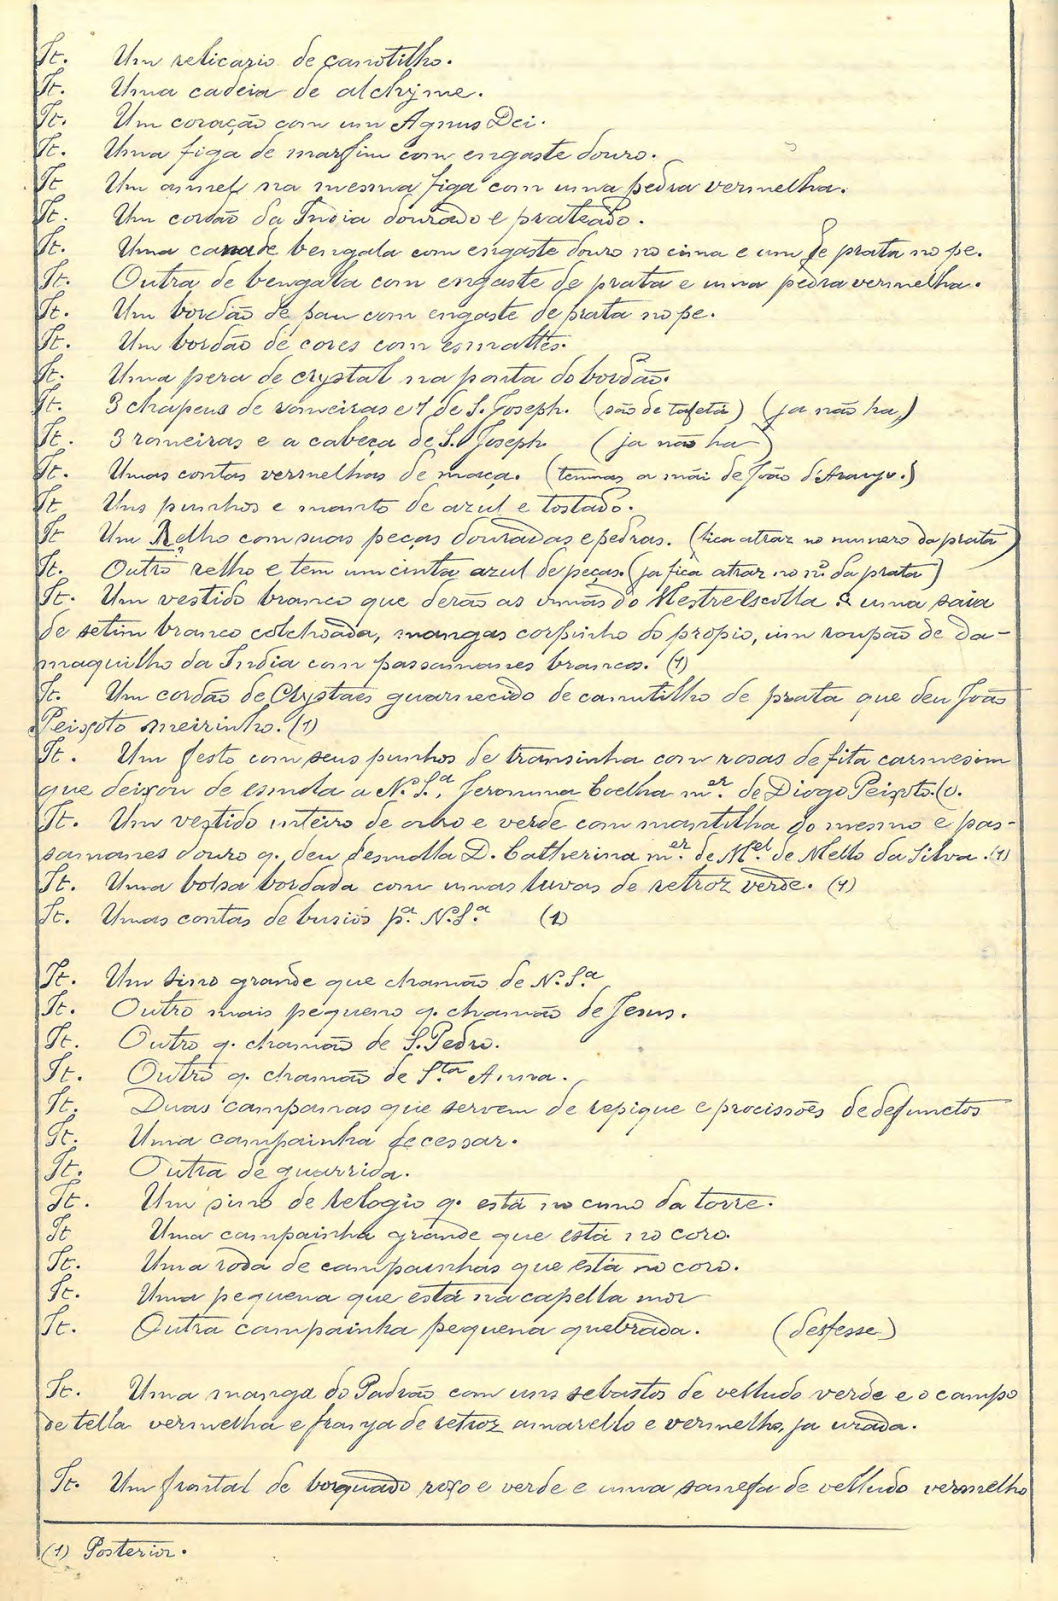 It. Um relicario de canotilho.
It. Uma cadeia de alchyme.
It. Um coração com um Agnus Dei.
It. Uma figa de marfim com engaste douro.
It Um annel na mesma figa com uma pedra vermelha.
It. Um cordão da India dourado e prateado.
It. Uma cana de bengala com engaste douro no cima e um de prata no pe.
It. Outra de bengala com engaste de prata e uma pedra vermelha.
It. Um bordão de pau com engaste de prata no pe.
It. Um bordão de cores com esmaltes.
It. Uma pera de crystal na ponta do bordão.
It. 3 chapeus de romeiras e 1 de S. Joseph. (são de tafetá) (ja não ha,)
It. 3 romeiras e a cabeça de S. Joseph (ja não ha)
It. Umas contas vermelhas de maça. (temnas a mãi de João d'Araujo.)
It Uns punhos e manto de azul e tostado.
It Um Relho com suas peças douradas e pedras. (fica atraz no numero da prata)
It. Outro relho e tem um cinta azul de peças. (ja fica atraz no nº. da prata)
It. Um vestido branco que derão as irmãs do Mestre Escolla & uma saia
de setim branco colchoada, mangas corpinho do propio, um roupão de da-
maquilho da India com passamanes brancos. (1)
It. Um cordão de Crystaes guarnecido de camutilho de prata que deu João
Peixoto meirinho. (1)
It. Um festo com seus punhos de transinha com rosas de fita carmesim
que deixou de esmola a N. S.ª, Jeronima Coelha m.er de Diogo Peixoto. (1).
It. Um vestido inteiro de ouro e verde com mantilha do mesmo e pas-
samanes douro q. deu desmolla D. Catherina m.er de M.el de Mello da Silva. (1)
It. Uma bolsa bordada com umas luvas de retroz verde. (1)
It. Umas contas de busios p.ª N. S.ª (1)
It. Um sino grande que chamão de N. S.ª
It. Outro mais pequeno q. chamão de Jesus.
It. Outro q. chamão de S. Pedro.
It. Outro q. chamão de S.ta Anna.
It. Duas campanas que servem de repique e procissões de defunctos
It. Uma campainha de cessar.
It. Outra de guarrida.
It. Um sino de relogio q. está no cimo da torre.
It Uma campainha grande que está no coro.
It. Uma roda de campainhas que está no coro.
It. Uma pequena que está na capella mor
It. Outra campainha pequena quebrada. (desfesse)
It. Uma manga do Padrão com uns sebastos de velludo verde e o campo
de tella vermelha e franja de retroz amarello e vermelho, ja uzada.
It. Um frontal de borquado roxo e verde e uma sanefa de velludo vermelho
(1) Posterior.